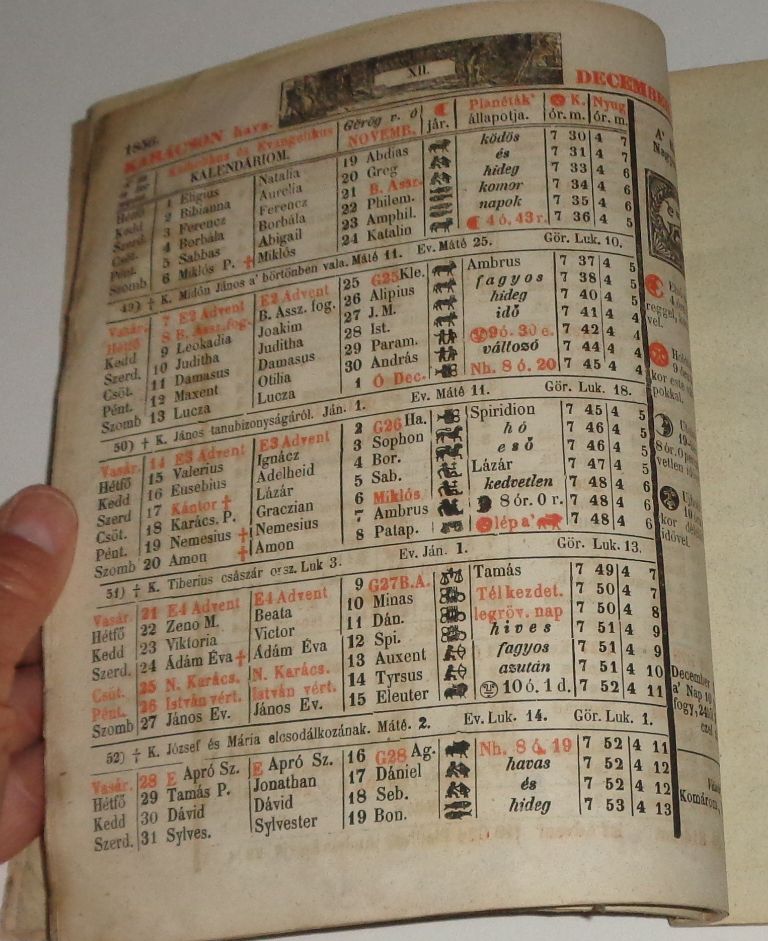 XII.
1856. DECEMBER
KARÁCSON hava.
Katholikus és Evangelikus KALENDÁRIOM. Görög v. ó NOVEMB. jár. Planéták' állapotja. K. ó r. m. Nyug ó r. m.
Hétfő 1 Eligius Natalia 19 Abdias ködös 7 30 4 7
Kedd 2 Bibianna Aurelia 20 Greg és 7 31 4 7
Szerd. 3 Ferencz Ferencz 21 B. Assz. hideg 7 33 4 6
Csöt. 4 Borbála Borbála 22 Philem. komor 7 34 4 6
Pént. 5 Sabbas Abigail 23 Amphil. napok 7 35 4 6
Szomb 6 Miklós P. † Miklós 24 Katalin 4 ó. 43 r. 7 36 4 5
49) † K. Midőn János a' börtönben vala. Máté 11. Ev. Máté 25. Gör. Luk. 10.
Vasár. 7 E2 Advent E2 Advent 25 G25 Kle. Ambrus 7 37 4 5
Hétfő 8 B. Assz. fog. B. Assz. fog. 26 Alipius fagyos 7 38 4 5
Kedd 9 Leokadia Joakim 27 J. M. hideg 7 40 4 5
Szerd. 10 Juditha Juditha 28 Ist. idő 7 41 4 5
Csöt. 11 Damasus Damasus 29 Param. 9 ó. 30 e. 7 42 4 5
Pént. 12 Maxent Otilia 30 András változó 7 44 4 5
Szomb 13 Lucza Lucza 1 Ó Dec. Nh. 8 ó. 20 7 45 4 5
50) † K. János tanubizonyságáról. Ján. 1. Ev. Máté 11. Gör. Luk. 18.
Vasár. 14 E3 Advent E3 Advent 2 G26 Ha. Spiridion 7 45 4 5
Hétfő 15 Valerius Ignácz 3 Sophon hó 7 46 4 5
Kedd 16 Eusebius Adelheid 4 Bor. eső 7 46 4 5
Szerd 17 Kántor † Lázár 5 Sab. Lázár 7 47 4 5
Csöt. 18 Karács. P. Graczian 6 Miklós kedvetlen 7 48 4 6
Pént. 19 Nemesius † Nemesius 7 Ambrus 8 ór. 0 r. 7 48 4 6
Szomb 20 Amon † Amon 8 Patap. lép a' 7 48 4 6
51) † K. Tiberius császár orsz. Luk 3. Ev. Ján. 1. Gör. Luk. 13.
Vasár. 21 E4 Advent E4 Advent 9 G27 B. A. Tamás 7 49 4 7
Hétfő 22 Zeno M. Beata 10 Minas Tél kezdet. 7 50 4 7
Kedd 23 Viktoria Victor 11 Dán. legröv. nap 7 50 4 8
Szerd. 24 Ádám Éva † Ádám Éva 12 Spi. hives 7 51 4 9
Csüt. 25 N. Karács. N. Karács. 13 Auxent fagyos 7 51 4 9
Pént. 26 István vért. István vért. 14 Tyrsus azután 7 51 4 10
Szomb 27 János Ev. János Ev. 15 Eleuter 10 ó. 1 d. 7 52 4 11
52) † K. József és Mária elcsodálkozának. Máté. 2. Ev. Luk. 14. Gör. Luk. 1.
Vasár. 28 E Apró Sz. E Apró Sz. 16 G28 Ag. Nh. 8 ó. 19 7 52 4 11
Hétfő 29 Tamás P. Jonathan 17 Dániel havas 7 52 4 12
Kedd 30 Dávid Dávid 18 Seb. és 7 52 4 12
Szerd. 31 Sylves. Sylvester 19 Bon. hideg 7 53 4 13
A'
reggel,
vel.
kor este
pokkal.
8 ór. 0
vetlen
kor
idővel.
December
a' Nap 10
fogy, 24
ezel
Komárom,